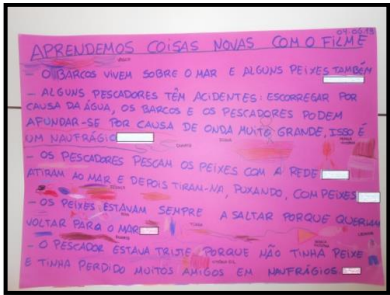 07.05.15
APRENDEMOS COISAS NOVAS COM O FILME
- O BARCOS VIVEM SOBRE O MAR E ALGUNS PEIXES TAMBÉM
- ALGUNS PESCADORES TÊM ACIDENTES: ESCORREGAR POR
CAUSA DA ÁGUA, OS BARCOS E OS PESCADORES PODEM
AFUNDAR-SE POR CAUSA DE ONDA MUITO GRANDE, ISSO É
UM NAUFRÁGIO
- OS PESCADORES PESCAM OS PEIXES COM A REDE
ATIRAM AO MAR E DEPOIS TIRAM-NA, PUXANDO, COM PEIXES
- OS PEIXES ESTAVAM SEMPRE A SALTAR PORQUE QUERIAM
VOLTAR PARA O MAR
- O PESCADOR ESTAVA TRISTE PORQUE NÃO TINHA PEIXE
E TINHA PERDIDO MUITOS AMIGOS EM NAUFRÁGIOS